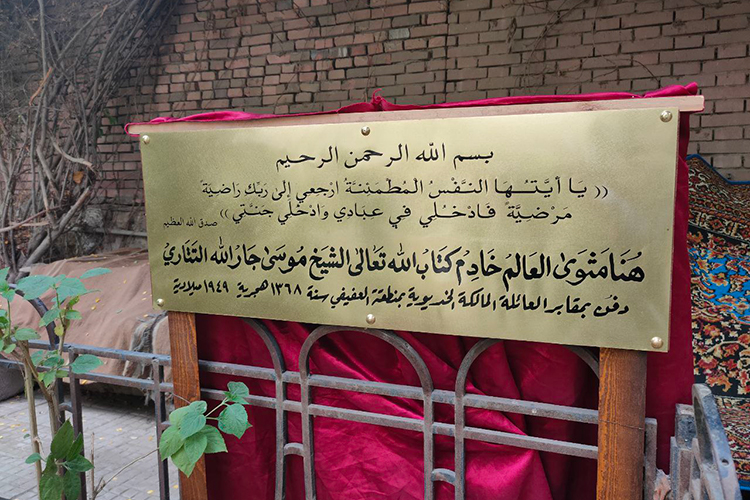 بسم الله الرحمن الرحيم
(( يَا أَيَّتُهَا النَّفْسُ المُطْمَئِنَّةُ ارْجِعِي إِلَى رَبِّكِ رَاضِيَةً
مَرْضِيَّةً فَادْخُلِي فِي عِبَادِي وَادْخُلِي جَنَّتِي )) صدق الله العظيم
هُنَا مَثْوَى العَالِمُ خَادِمُ كِتَابُ الله تَعَالَى الشَّيْخ مُوسَى جَارُ الله التَتَارِيُ
دفن بمقابر العائلة المالكة الخديوية بمنطقة العفيفي سنة ١٣٦٨ هجرية ١٩٤٩ ميلادية